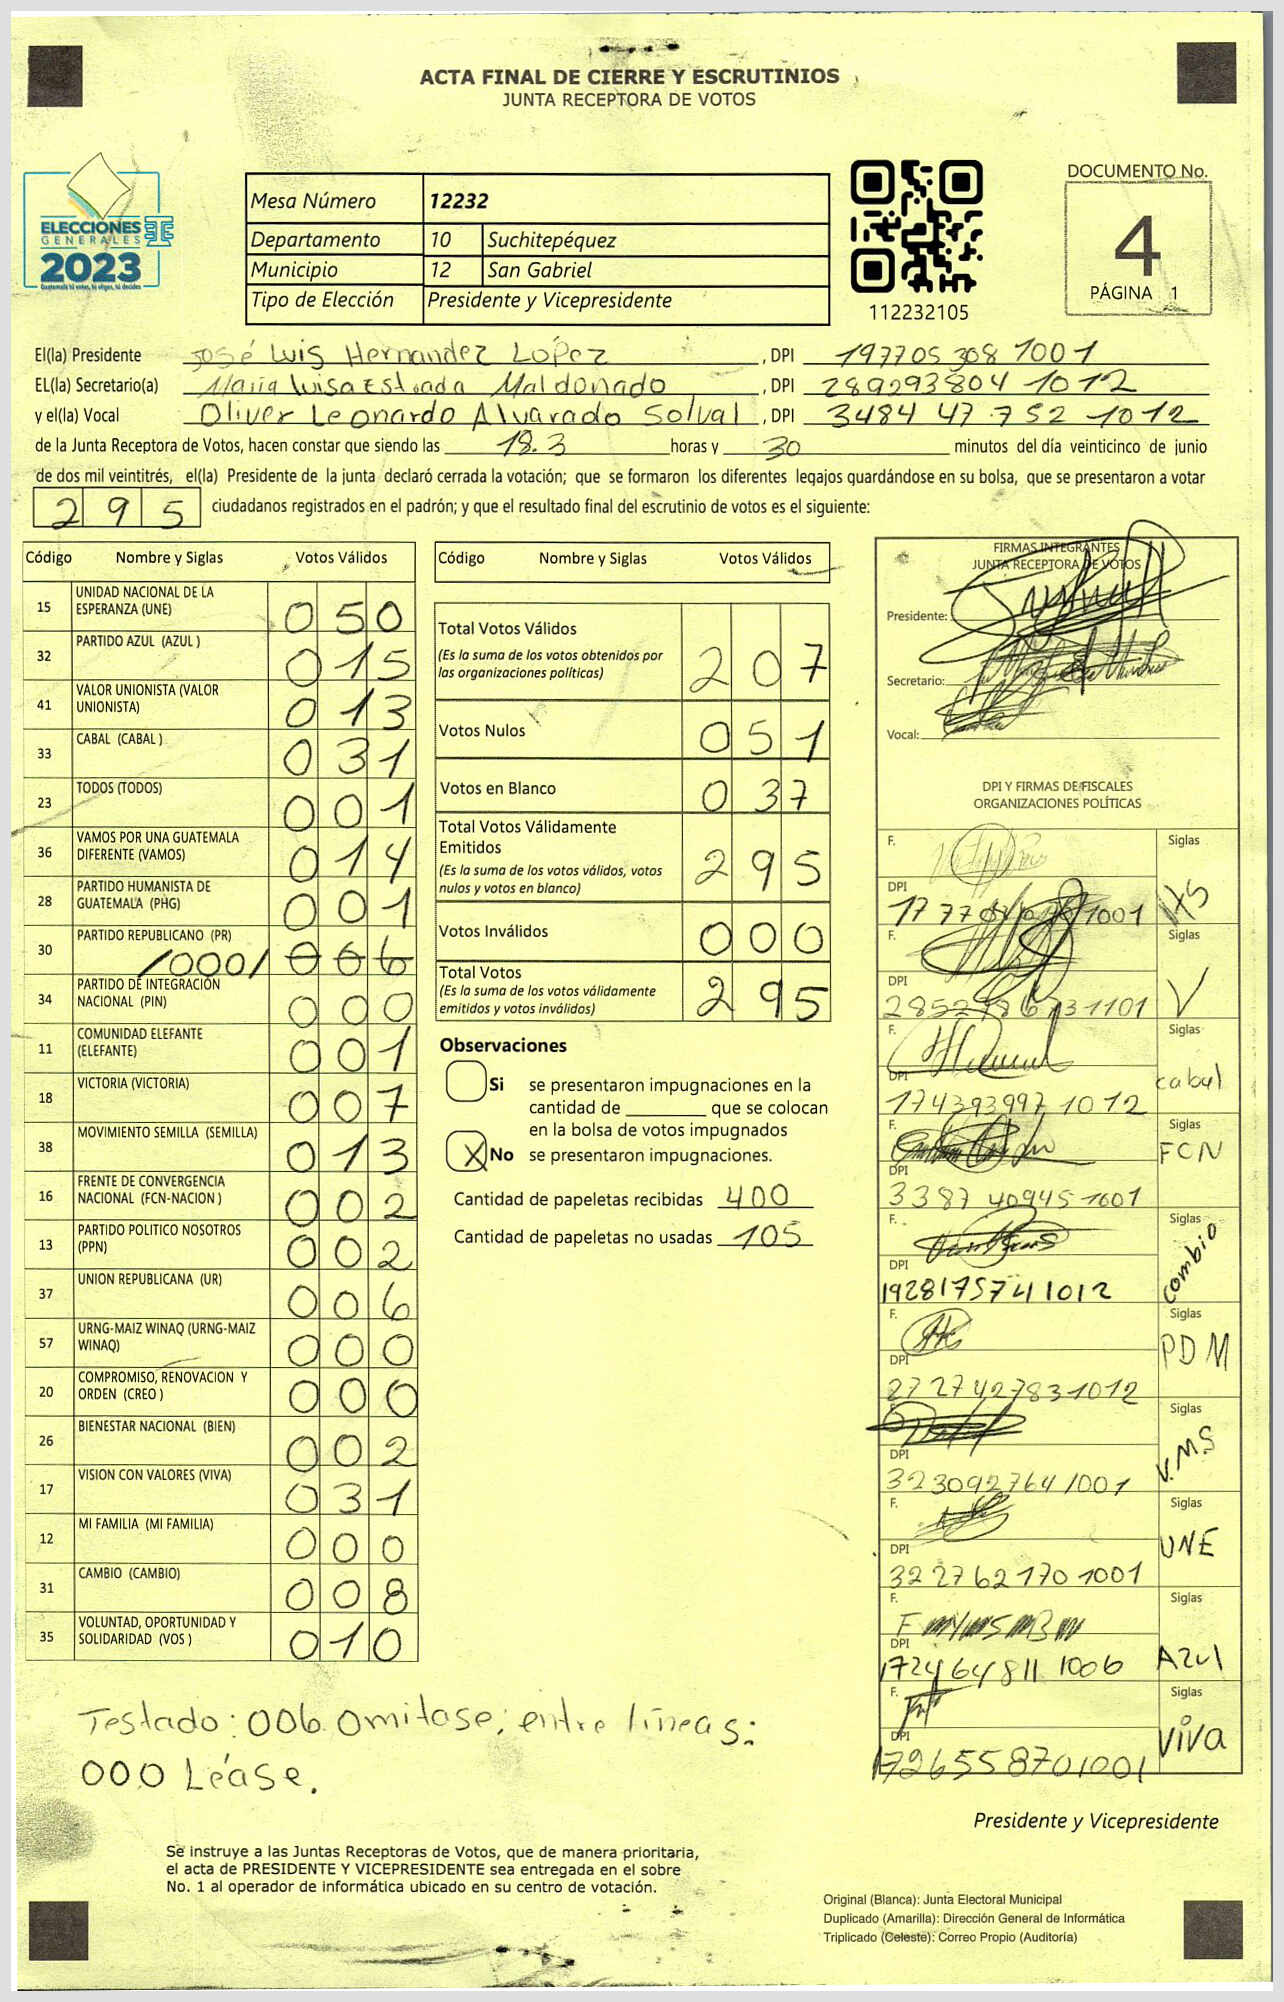 ACTA FINAL DE CIERRE Y ESCRUTINIOS
JUNTA RECEPTORA DE VOTOS
ELECCIONES
GENERALES
2023
Guatemala tú votas, tú eliges, tú decides
Mesa Número 12232
Departamento 10 Suchitepéquez
Municipio 12 San Gabriel
Tipo de Elección Presidente y Vicepresidente
112232105
DOCUMENTO No.
4
PÁGINA 1
El(la) Presidente José Luis Hernandez López, DPI 197705308 1001
EL(la) Secretario(a) María Luisa Estrada Maldonado, DPI 289293804 1012
y el(la) Vocal Oliver Leonardo Alvarado Solval, DPI 3484 47 752 1012
de la Junta Receptora de Votos, hacen constar que siendo las 18.3 horas y 30 minutos del día veinticinco de junio
de dos mil veintitrés, el(la) Presidente de la junta declaró cerrada la votación; que se formaron los diferentes legajos guardándose en su bolsa, que se presentaron a votar
295 ciudadanos registrados en el padrón; y que el resultado final del escrutinio de votos es el siguiente:
Código Nombre y Siglas Votos Válidos
15 UNIDAD NACIONAL DE LA
ESPERANZA (UNE) 050
32 PARTIDO AZUL (AZUL ) 015
41 VALOR UNIONISTA (VALOR
UNIONISTA) 013
33 CABAL (CABAL ) 031
23 TODOS (TODOS) 001
36 VAMOS POR UNA GUATEMALA
DIFERENTE (VAMOS) 014
28 PARTIDO HUMANISTA DE
GUATEMALA (PHG) 001
30 PARTIDO REPUBLICANO (PR)
/000/ 006
34 PARTIDO DE INTEGRACIÓN
NACIONAL (PIN) 000
11 COMUNIDAD ELEFANTE
(ELEFANTE) 001
18 VICTORIA (VICTORIA) 007
38 MOVIMIENTO SEMILLA (SEMILLA) 013
16 FRENTE DE CONVERGENCIA
NACIONAL (FCN-NACION ) 002
13 PARTIDO POLITICO NOSOTROS
(PPN) 002
37 UNION REPUBLICANA (UR) 006
57 URNG-MAIZ WINAQ (URNG-MAIZ
WINAQ) 000
20 COMPROMISO, RENOVACION Y
ORDEN (CREO ) 000
26 BIENESTAR NACIONAL (BIEN) 002
17 VISION CON VALORES (VIVA) 031
12 MI FAMILIA (MI FAMILIA) 000
31 CAMBIO (CAMBIO) 008
35 VOLUNTAD, OPORTUNIDAD Y
SOLIDARIDAD (VOS ) 010
Código Nombre y Siglas Votos Válidos
Total Votos Válidos
(Es la suma de los votos obtenidos por
las organizaciones políticas) 207
Votos Nulos 051
Votos en Blanco 037
Total Votos Válidamente
Emitidos
(Es la suma de los votos válidos, votos
nulos y votos en blanco) 295
Votos Inválidos 000
Total Votos
(Es la suma de los votos válidamente
emitidos y votos inválidos) 295
Observaciones
Si se presentaron impugnaciones en la
cantidad de ________ que se colocan
en la bolsa de votos impugnados
X No se presentaron impugnaciones.
Cantidad de papeletas recibidas 400
Cantidad de papeletas no usadas 105
FIRMAS INTEGRANTES
JUNTA RECEPTORA DE VOTOS
Presidente:
Secretario:
Vocal:
DPI Y FIRMAS DE FISCALES
ORGANIZACIONES POLÍTICAS
F. Siglas
DPI
F. Siglas
DPI V
F. Siglas
DPI cabal
174393997 1012
F. Siglas
DPI FCN
3387 40945 1601
F. Siglas
DPI Cambio
1928175741012
F. Siglas
DPI PDM
2727427831012
F. Siglas
DPI V.M.S
3230927641001
F. Siglas
DPI UNE
322762170 1001
F. Siglas
DPI Azul
172464811 1006
F. Siglas
DPI Viva
1726558701001
Testado: 006 Omitase; entre líneas:
000 Léase.
Presidente y Vicepresidente
Se instruye a las Juntas Receptoras de Votos, que de manera prioritaria,
el acta de PRESIDENTE Y VICEPRESIDENTE sea entregada en el sobre
No. 1 al operador de informática ubicado en su centro de votación.
Original (Blanca): Junta Electoral Municipal
Duplicado (Amarilla): Dirección General de Informática
Triplicado (Celeste): Correo Propio (Auditoría)